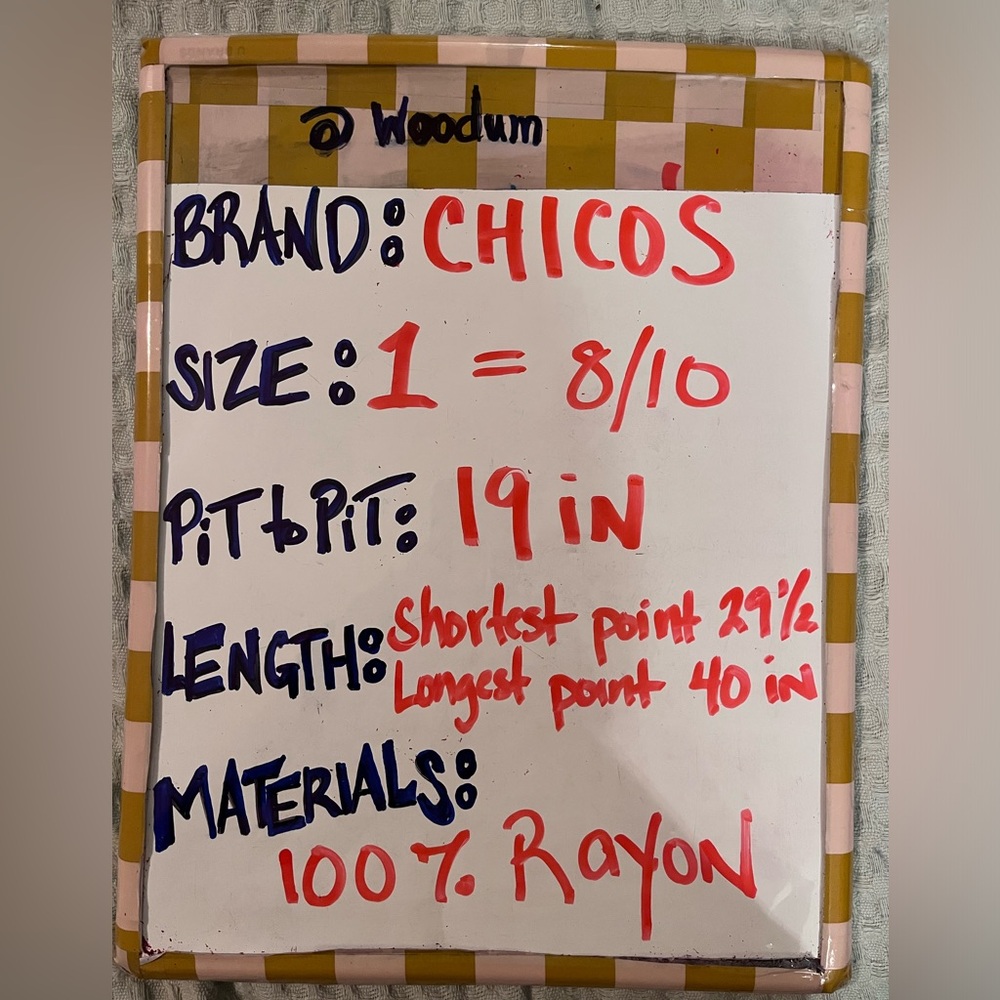 @ Woodum
BRAND: CHICO'S
SIZE: 1 = 8/10
PiT to PiT: 19 iN
LENGTH: Shortest point 29 1/2
Longest point 40 iN
MATERIALS:
100% RayoN